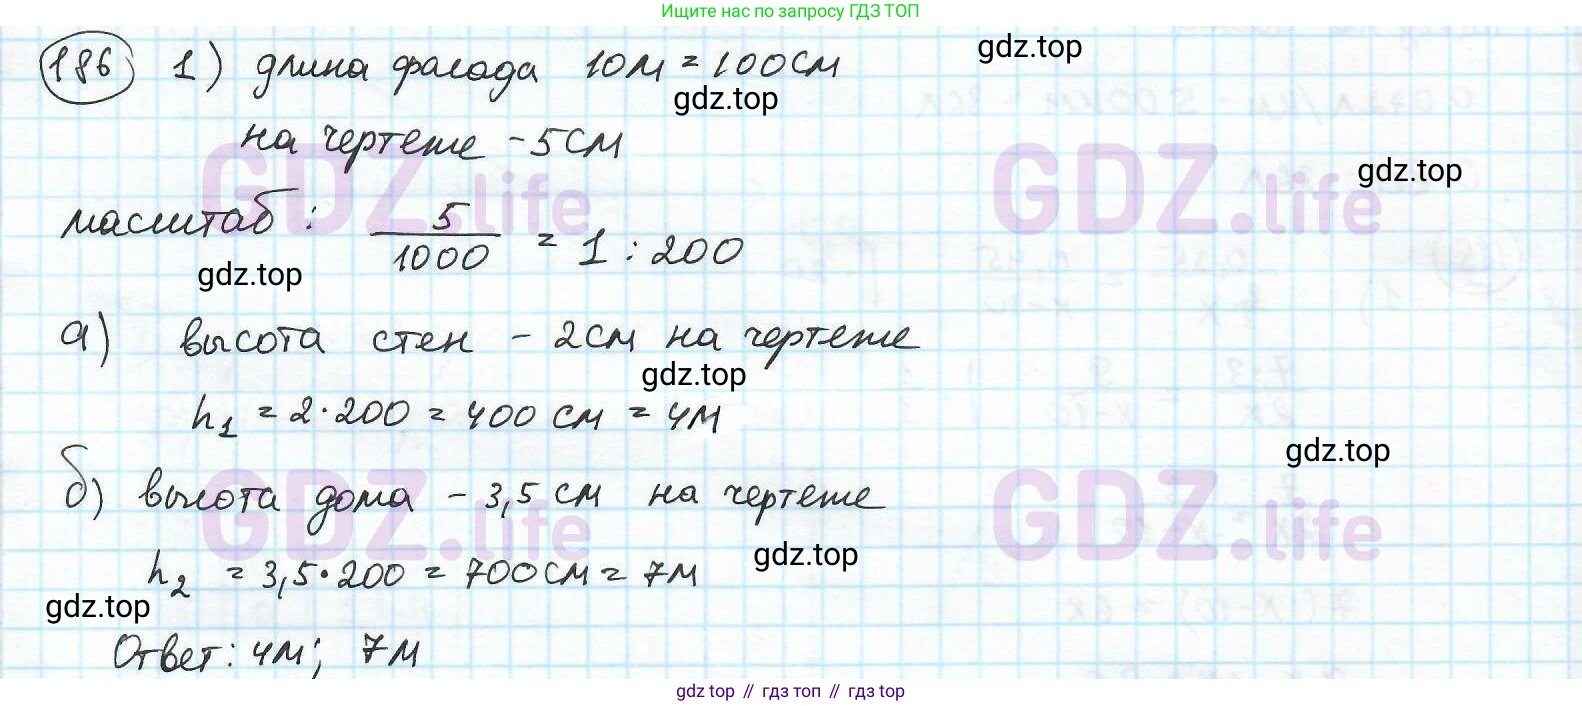 Ищите нас по запросу ГДЗ ТОП
186 1) длина фасада 10м = 100см
gdz.top
gdz.top
на чертеже - 5см
gdz.top
GDZ.life GDZ.life
масштаб: 5/1000 = 1 : 200
gdz.top
а) высота стен - 2см на чертеже
gdz.top
h₁ = 2·200 = 400 см = 4м
gdz.top
б) высота дома - 3,5 см на чертеже
GDZ.life GDZ.life
gdz.top
h₂ = 3,5·200 = 700см = 7м
gdz.top
Ответ: 4м; 7м
gdz top // гдз топ // гдз top